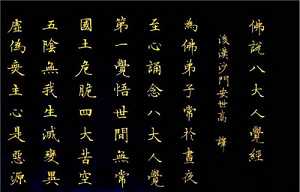 佛說八大人覺經
後漢沙門安世高 譯
為佛弟子常於晝夜
至心誦念八大人覺
第一覺悟世間無常
國土危脆四大苦空
五陰無我生滅變異
虛偽無主心是惡源